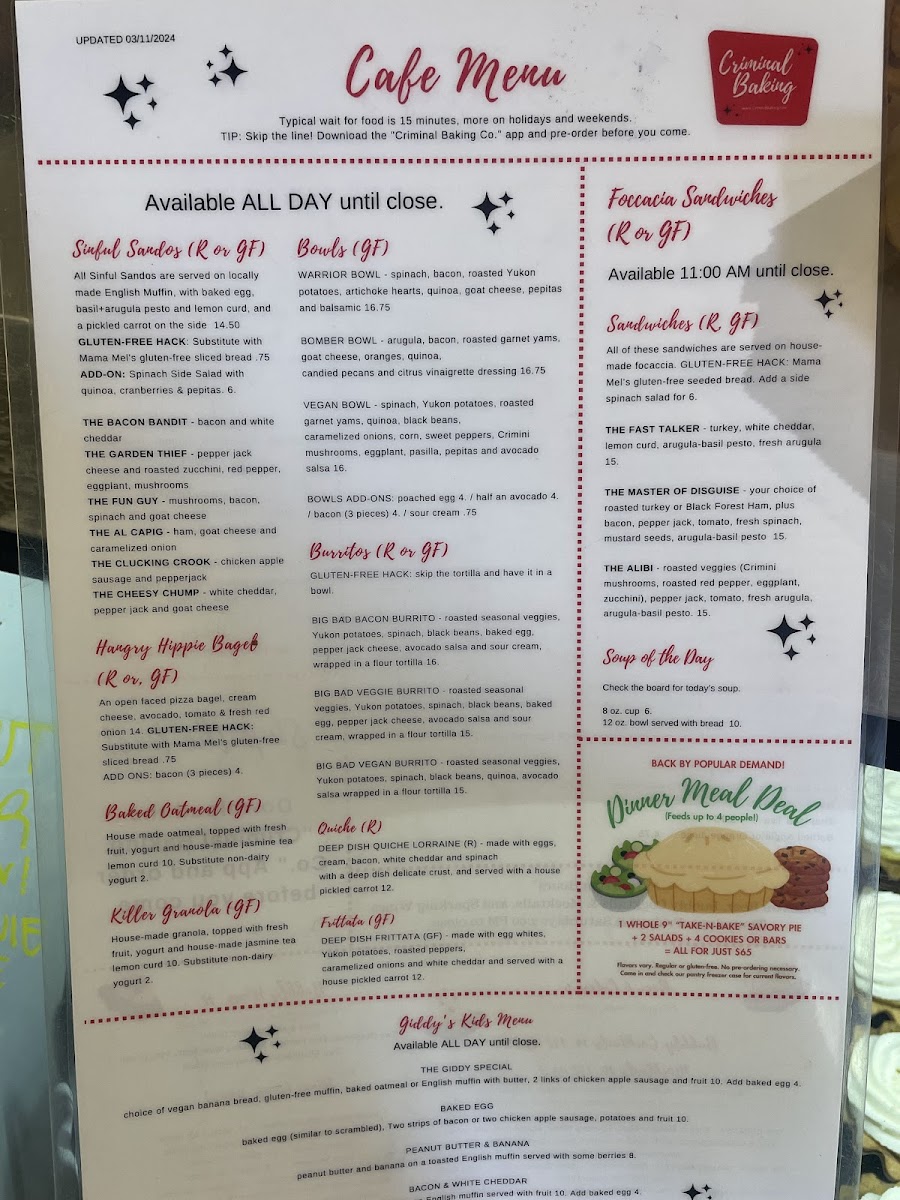 UPDATED 03/11/2024
Cafe Menu
Criminal
Baking
Typical wait for food is 15 minutes, more on holidays and weekends.
TIP: Skip the line! Download the "Criminal Baking Co." app and pre-order before you come.
Available ALL DAY until close.
Sinful Sandos (R or GF)
All Sinful Sandos are served on locally
made English Muffin, with baked egg,
basil+arugula pesto and lemon curd, and
a pickled carrot on the side 14.50
GLUTEN-FREE HACK: Substitute with
Mama Mel's gluten-free sliced bread .75
ADD-ON: Spinach Side Salad with
quinoa, cranberries & pepitas. 6.
THE BACON BANDIT - bacon and white
cheddar
THE GARDEN THIEF - pepper jack
cheese and roasted zucchini, red pepper,
eggplant, mushrooms
THE FUN GUY - mushrooms, bacon,
spinach and goat cheese
THE AL CAPIG - ham, goat cheese and
caramelized onion
THE CLUCKING CROOK - chicken apple
sausage and pepperjack
THE CHEESY CHUMP - white cheddar,
pepper jack and goat cheese
Hangry Hippie Bagel
(R or, GF)
An open faced pizza bagel, cream
cheese, avocado, tomato & fresh red
onion 14. GLUTEN-FREE HACK:
Substitute with Mama Mel's gluten-free
sliced bread .75
ADD ONS: bacon (3 pieces) 4.
Baked Oatmeal (GF)
House made oatmeal, topped with fresh
fruit, yogurt and house-made jasmine tea
lemon curd 10. Substitute non-dairy
yogurt 2.
Killer Granola (GF)
House-made granola, topped with fresh
fruit, yogurt and house-made jasmine tea
lemon curd 10. Substitute non-dairy
yogurt 2.
Bowls (GF)
WARRIOR BOWL - spinach, bacon, roasted Yukon
potatoes, artichoke hearts, quinoa, goat cheese, pepitas
and balsamic 16.75
BOMBER BOWL - arugula, bacon, roasted garnet yams,
goat cheese, oranges, quinoa,
candied pecans and citrus vinaigrette dressing 16.75
VEGAN BOWL - spinach, Yukon potatoes, roasted
garnet yams, quinoa, black beans,
caramelized onions, corn, sweet peppers, Crimini
mushrooms, eggplant, pasilla, pepitas and avocado
salsa 16.
BOWLS ADD-ONS: poached egg 4. / half an avocado 4.
/ bacon (3 pieces) 4. / sour cream .75
Burritos (R or GF)
GLUTEN-FREE HACK: skip the tortilla and have it in a
bowl.
BIG BAD BACON BURRITO - roasted seasonal veggies,
Yukon potatoes, spinach, black beans, baked egg,
pepper jack cheese, avocado salsa and sour cream,
wrapped in a flour tortilla 16.
BIG BAD VEGGIE BURRITO - roasted seasonal
veggies, Yukon potatoes, spinach, black beans, baked
egg, pepper jack cheese, avocado salsa and sour
cream, wrapped in a flour tortilla 15.
BIG BAD VEGAN BURRITO - roasted seasonal veggies,
Yukon potatoes, spinach, black beans, quinoa, avocado
salsa wrapped in a flour tortilla 15.
Quiche (R)
DEEP DISH QUICHE LORRAINE (R) - made with eggs,
cream, bacon, white cheddar and spinach
with a deep dish delicate crust, and served with a house
pickled carrot 12.
Frittata (GF)
DEEP DISH FRITTATA (GF) - made with egg whites,
Yukon potatoes, roasted peppers,
caramelized onions and white cheddar and served with a
house pickled carrot 12.
Foccacia Sandwiches
(R or GF)
Available 11:00 AM until close.
Sandwiches (R, GF)
All of these sandwiches are served on house-
made focaccia. GLUTEN-FREE HACK: Mama
Mel's gluten-free seeded bread. Add a side
spinach salad for 6.
THE FAST TALKER - turkey, white cheddar,
lemon curd, arugula-basil pesto, fresh arugula
15.
THE MASTER OF DISGUISE - your choice of
roasted turkey or Black Forest Ham, plus
bacon, pepper jack, tomato, fresh spinach,
mustard seeds, arugula-basil pesto 15.
THE ALIBI - roasted veggies (Crimini
mushrooms, roasted red pepper, eggplant,
zucchini), pepper jack, tomato, fresh arugula,
arugula-basil pesto. 15.
Soup of the Day
Check the board for today's soup.
8 oz. cup 6.
12 oz. bowl served with bread 10.
BACK BY POPULAR DEMAND!
Dinner Meal Deal
(Feeds up to 4 people!)
1 WHOLE 9" "TAKE-N-BAKE" SAVORY PIE
+ 2 SALADS + 4 COOKIES OR BARS
= ALL FOR JUST $65
Flavors vary. Regular or gluten-free. No pre-ordering necessary.
Come in and check our pantry freezer case for current flavors.
Giddy's Kids Menu
Available ALL DAY until close.
THE GIDDY SPECIAL
choice of vegan banana bread, gluten-free muffin, baked oatmeal or English muffin with butter, 2 links of chicken apple sausage and fruit 10. Add baked egg 4.
BAKED EGG
baked egg (similar to scrambled), Two strips of bacon or two chicken apple sausage, potatoes and fruit 10.
PEANUT BUTTER & BANANA
peanut butter and banana on a toasted English muffin served with some berries 8.
BACON & WHITE CHEDDAR
English muffin served with fruit 10. Add baked egg 4.